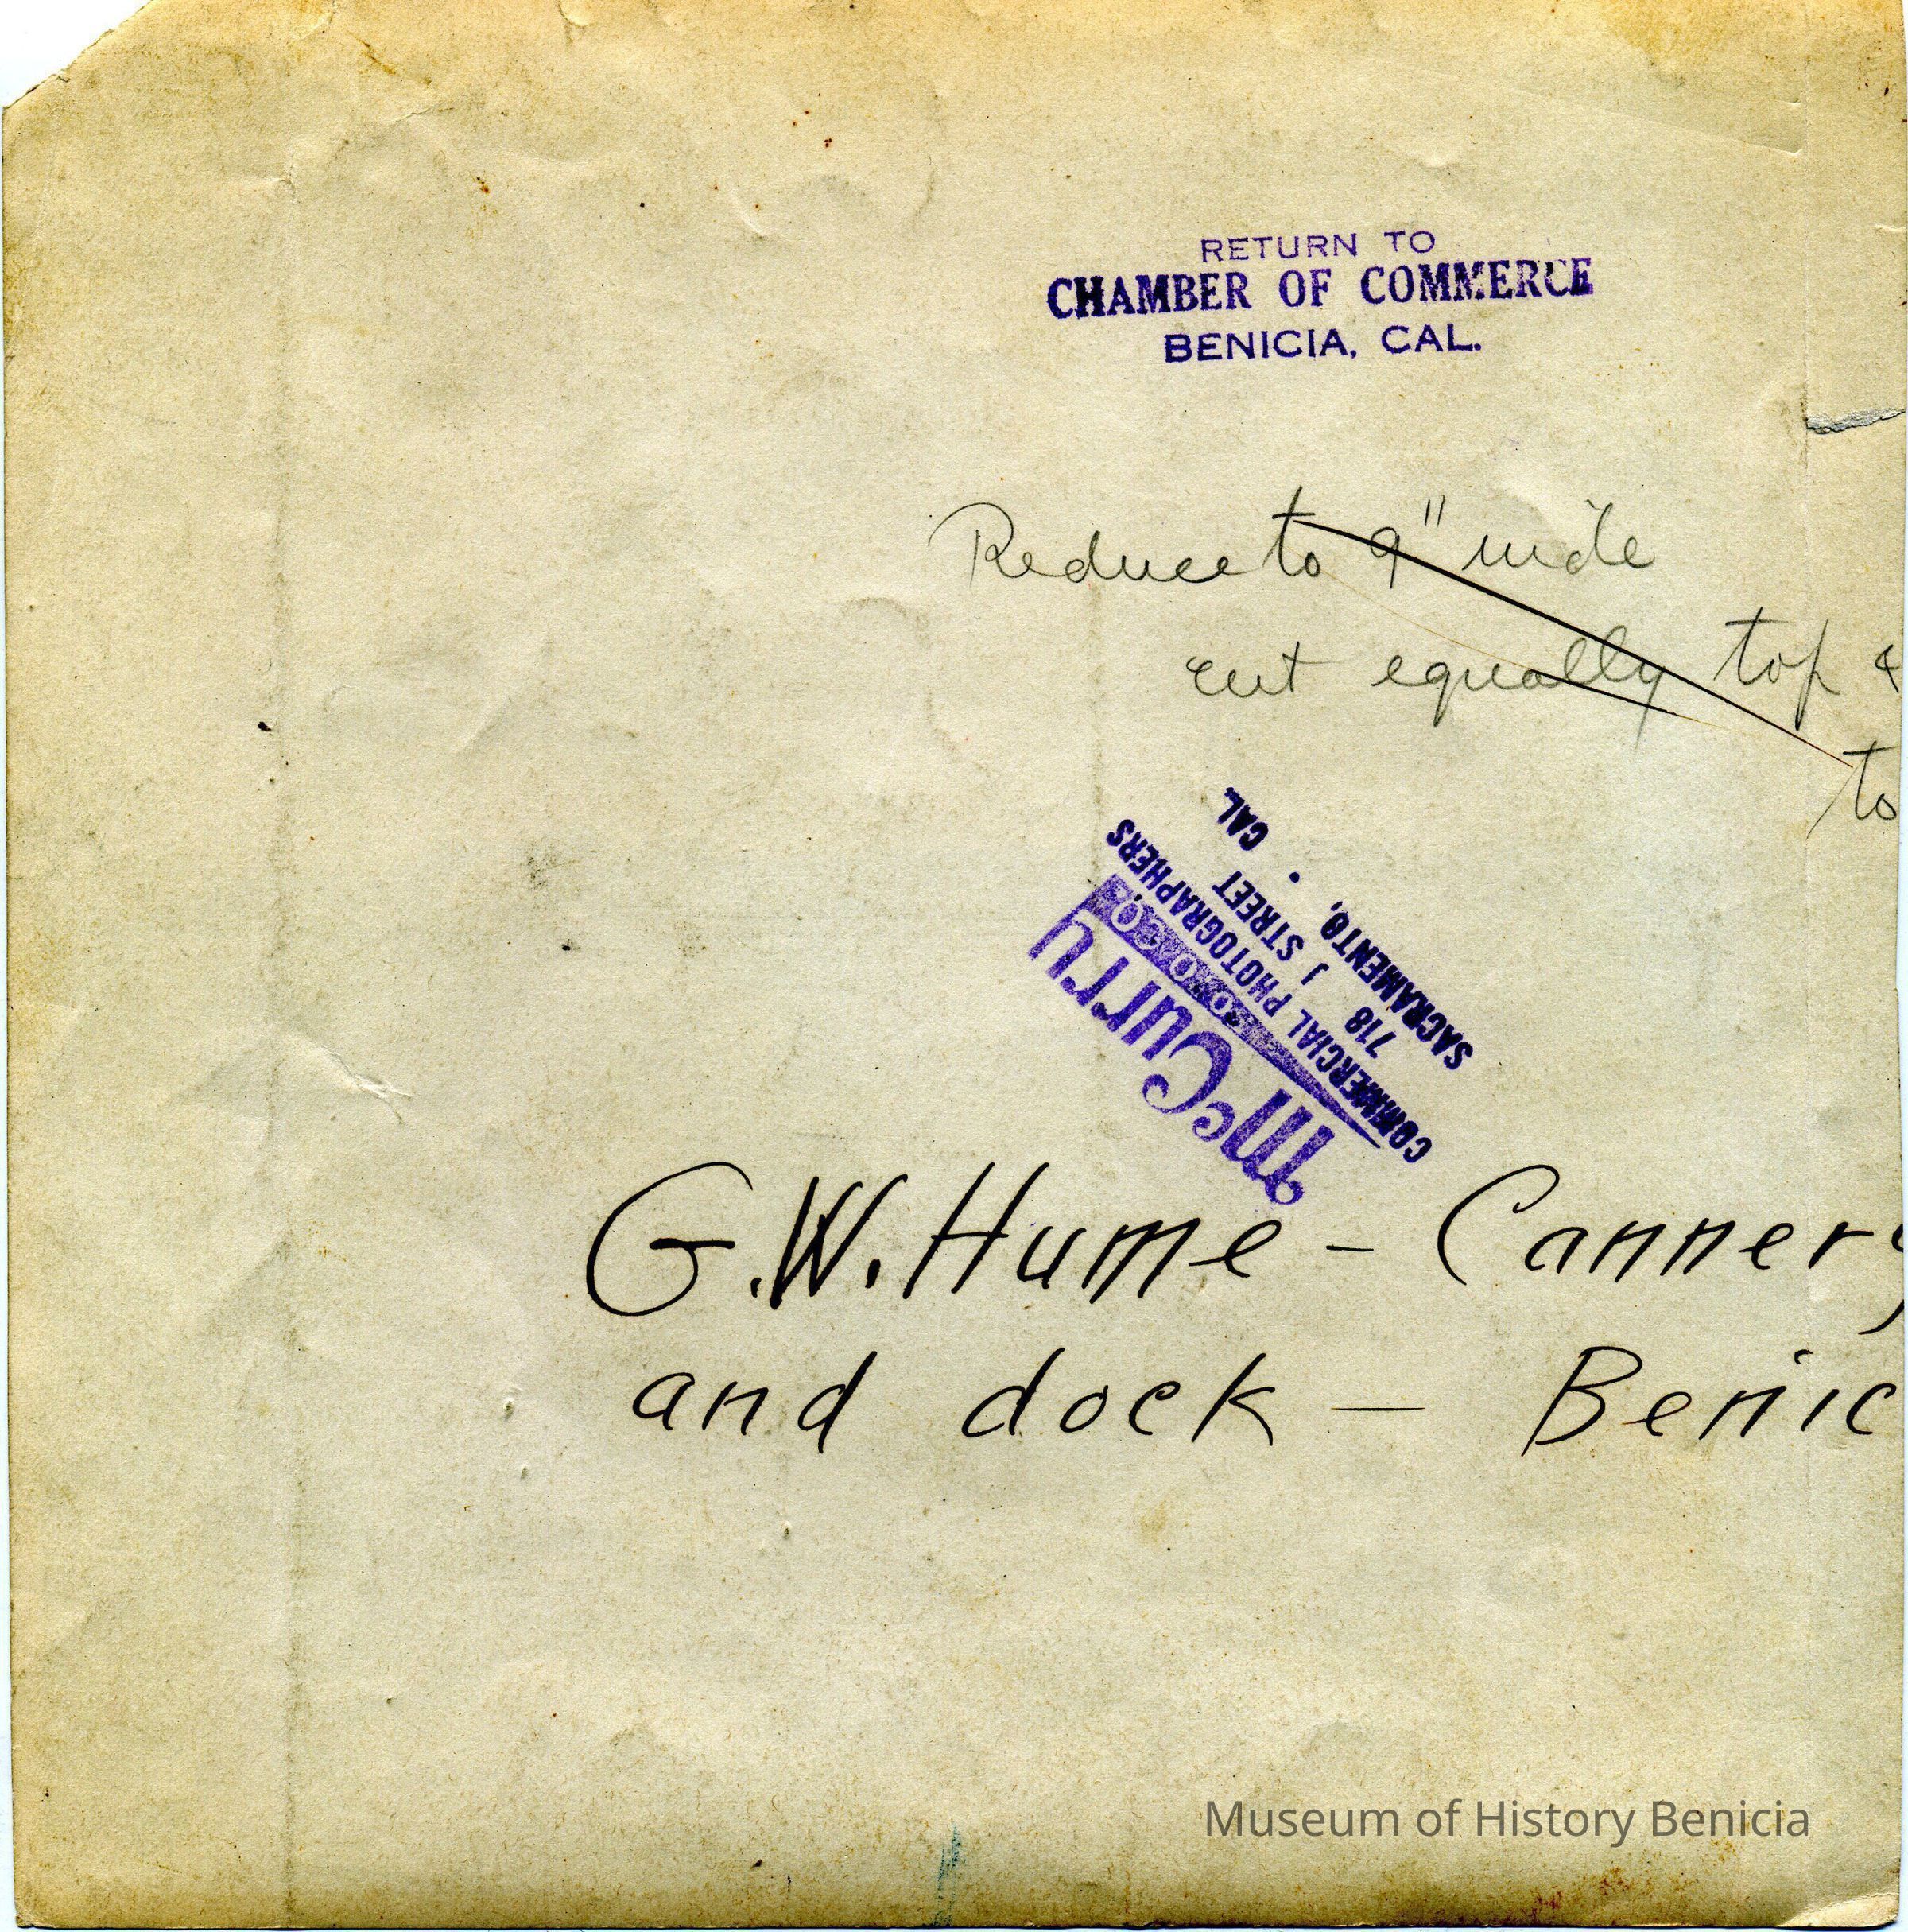 RETURN TO
CHAMBER OF COMMERCE
BENICIA, CAL.
Reduce to 9" wide
cut equally top &
to
McCurry
FOTO CO.
COMMERCIAL PHOTOGRAPHERS
718 J STREET
SACRAMENTO, CAL.
G.W. Hume - Cannery
and dock — Benic
Museum of History Benicia